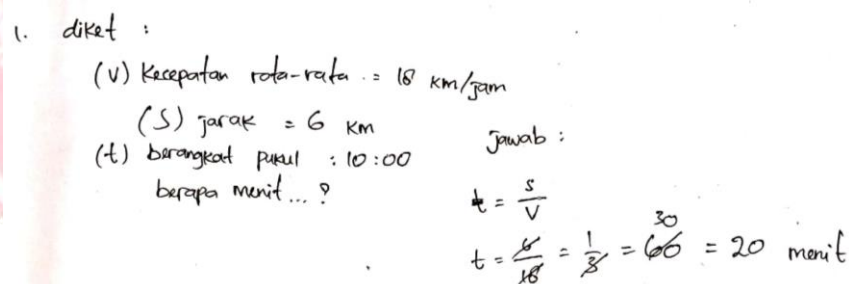 1. diket :
(V) Kecepatan rata-rata = 18 km/jam
(S) jarak = 6 km
(t) berangkat pukul : 10:00
berapa menit ... ?
Jawab :
t = s/v
t = 6/18 = 1/3 = 60 = 20 menit
30